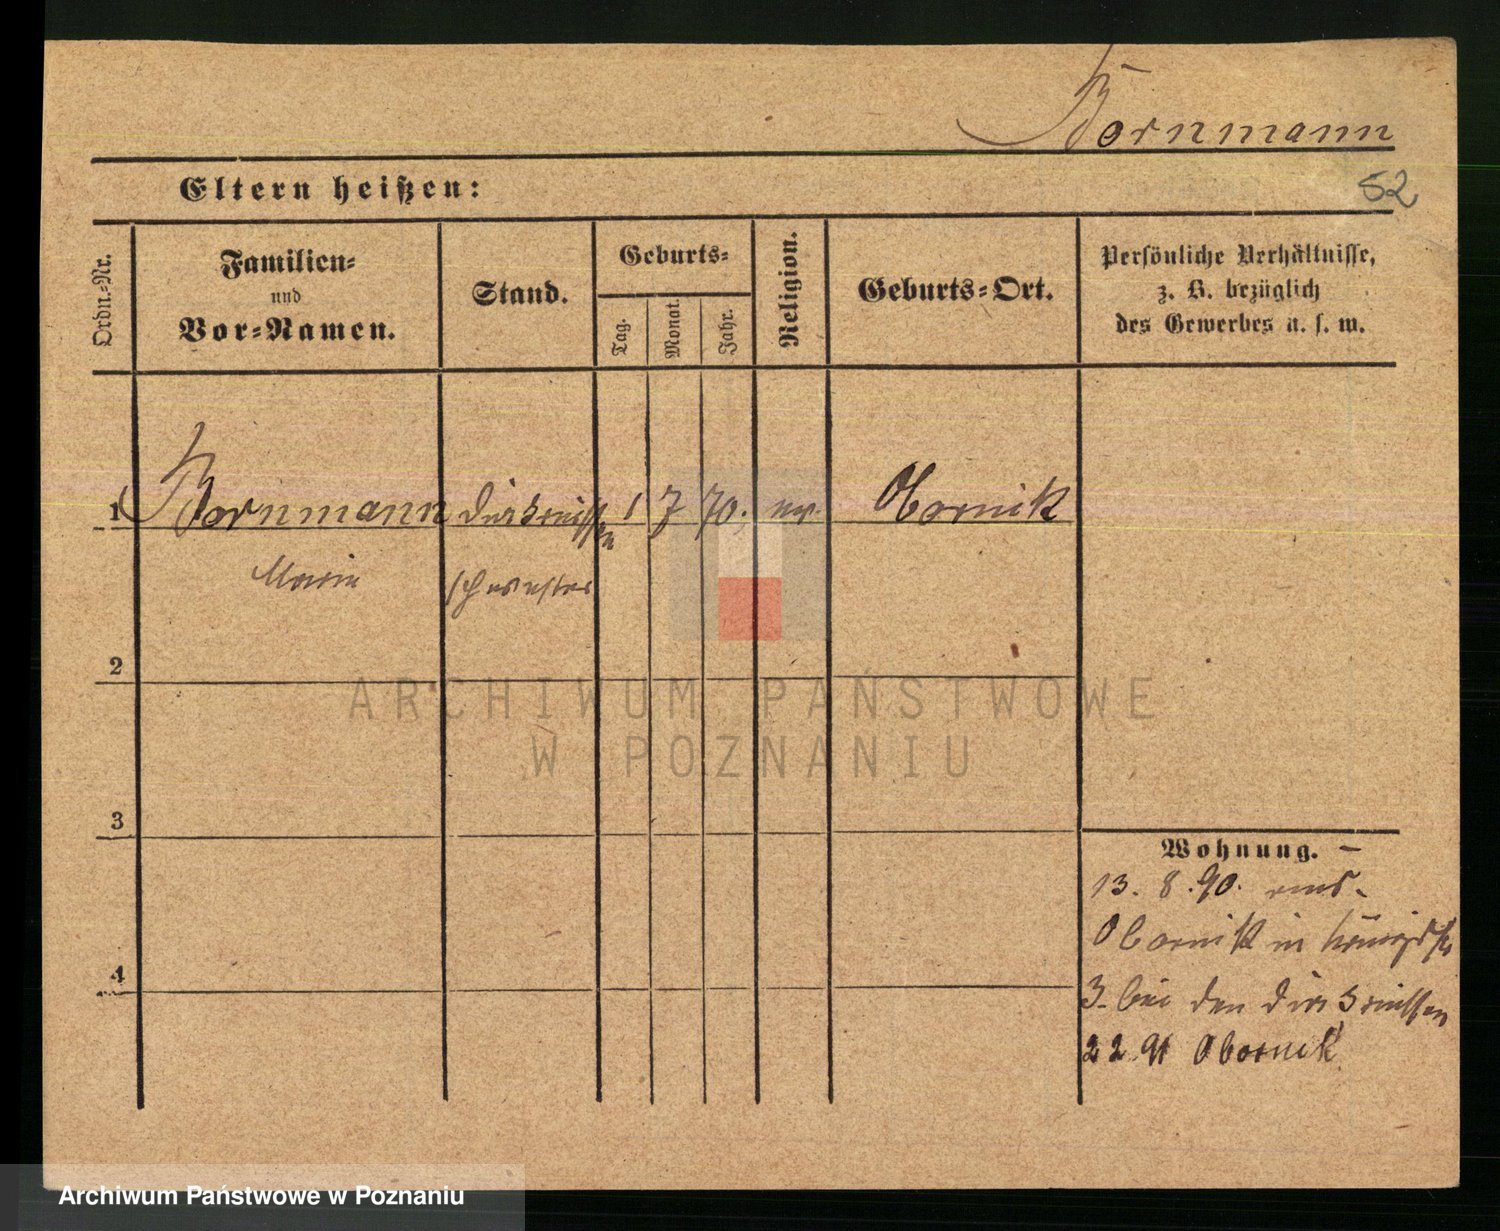 Bornmann
52
Eltern heißen:
Ordn.-Nr.
Familien-
und
Vor-Namen.
Stand.
Geburts-
Tag.
Monat.
Jahr.
Religion.
Geburts-Ort.
Persönliche Verhältnisse,
z. B. bezüglich
des Gewerbes u. s. w.
1 Bornmann Diakonissen 1 7 70. ev. Obornik
Marie schwester
2
3
4
Wohnung.
13. 8. 90. aus
Obornik in Königsstr
3 bei den Diakonissen
2 2. 91 Obornik
ARCHIWUM PAŃSTWOWE
W POZNANIU
Archiwum Państwowe w Poznaniu